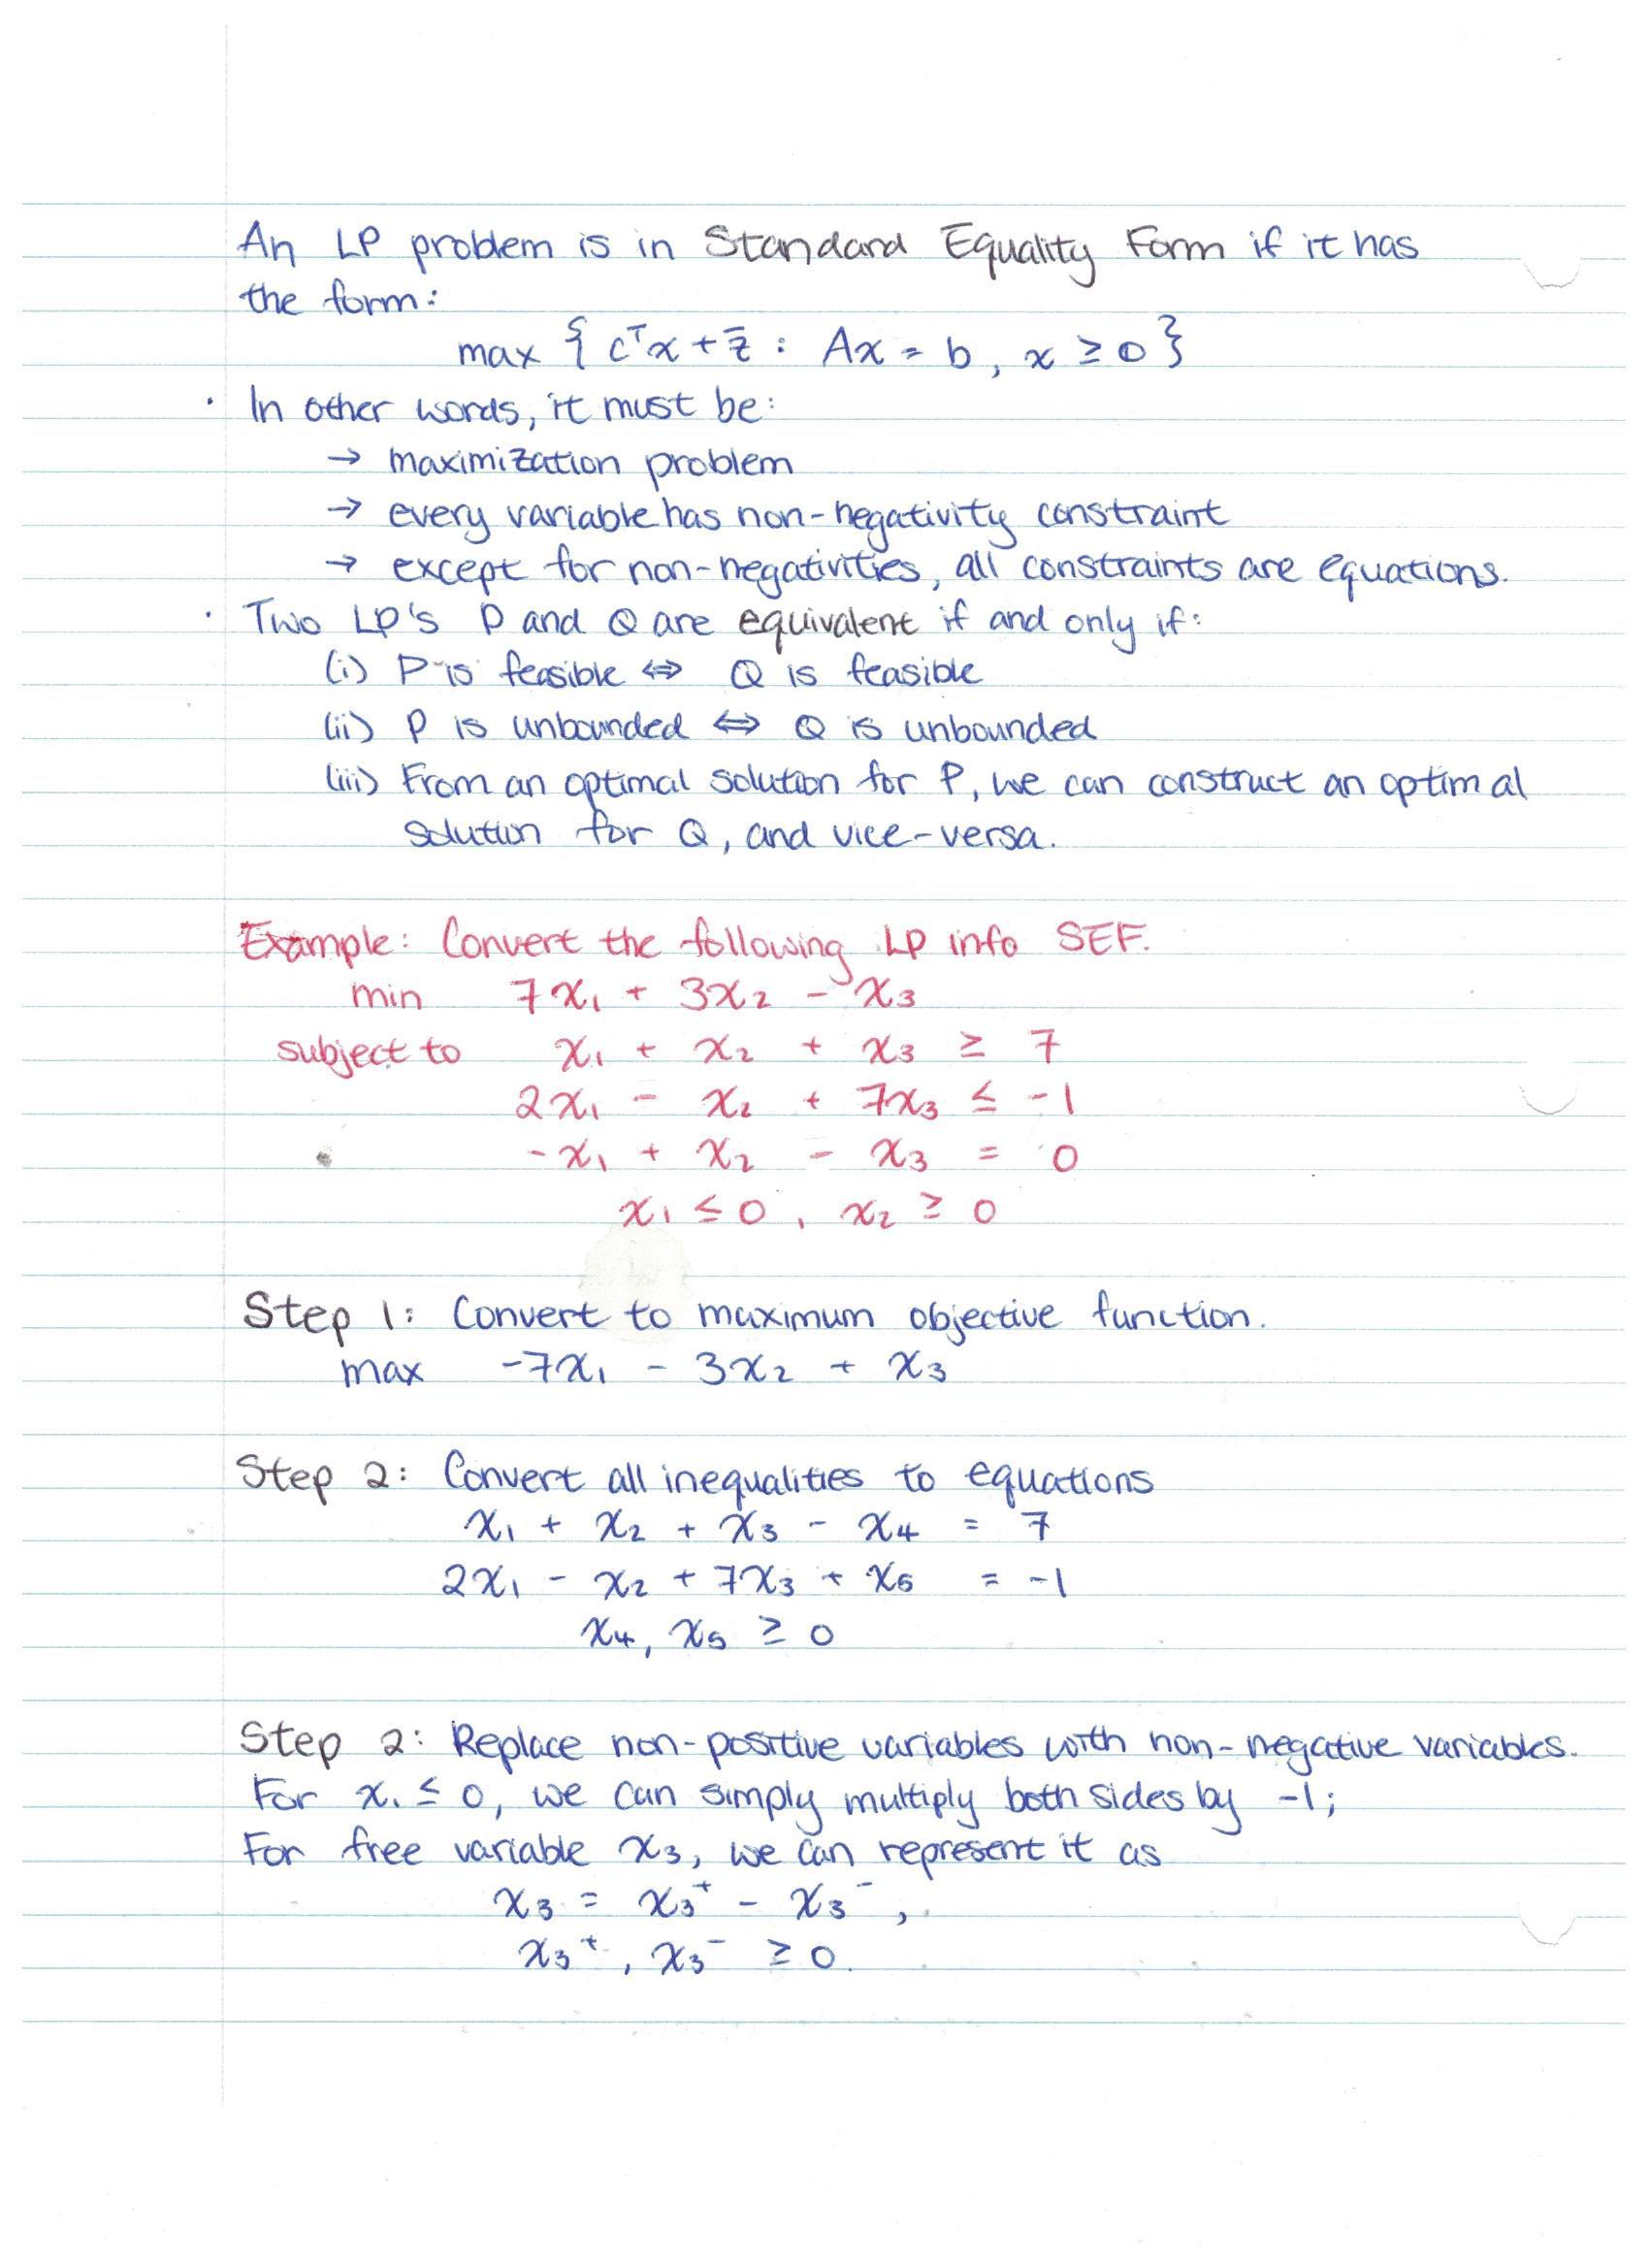 An LP problem is in Standard Equality Form if it has
the form:
max { cᵀx + z̄ : Ax = b, x ≥ 0 }
· In other words, it must be:
→ maximization problem
→ every variable has non-negativity constraint
→ except for non-negativities, all constraints are equations.
· Two LP's P and Q are equivalent if and only if:
(i) P is feasible ⇔ Q is feasible
(ii) P is unbounded ⇔ Q is unbounded
(iii) From an optimal solution for P, we can construct an optimal
solution for Q, and vice-versa.
Example: Convert the following LP info SEF.
min 7x₁ + 3x₂ - x₃
subject to x₁ + x₂ + x₃ ≥ 7
2x₁ - x₂ + 7x₃ ≤ -1
-x₁ + x₂ - x₃ = 0
x₁ ≤ 0, x₂ ≥ 0
Step 1: Convert to maximum objective function.
max -7x₁ - 3x₂ + x₃
Step 2: Convert all inequalities to equations
x₁ + x₂ + x₃ - x₄ = 7
2x₁ - x₂ + 7x₃ + x₅ = -1
x₄, x₅ ≥ 0
Step 2: Replace non-positive variables with non-negative variables.
For x₁ ≤ 0, we can simply multiply both sides by -1;
For free variable x₃, we can represent it as
x₃ = x₃⁺ - x₃⁻,
x₃⁺, x₃⁻ ≥ 0.